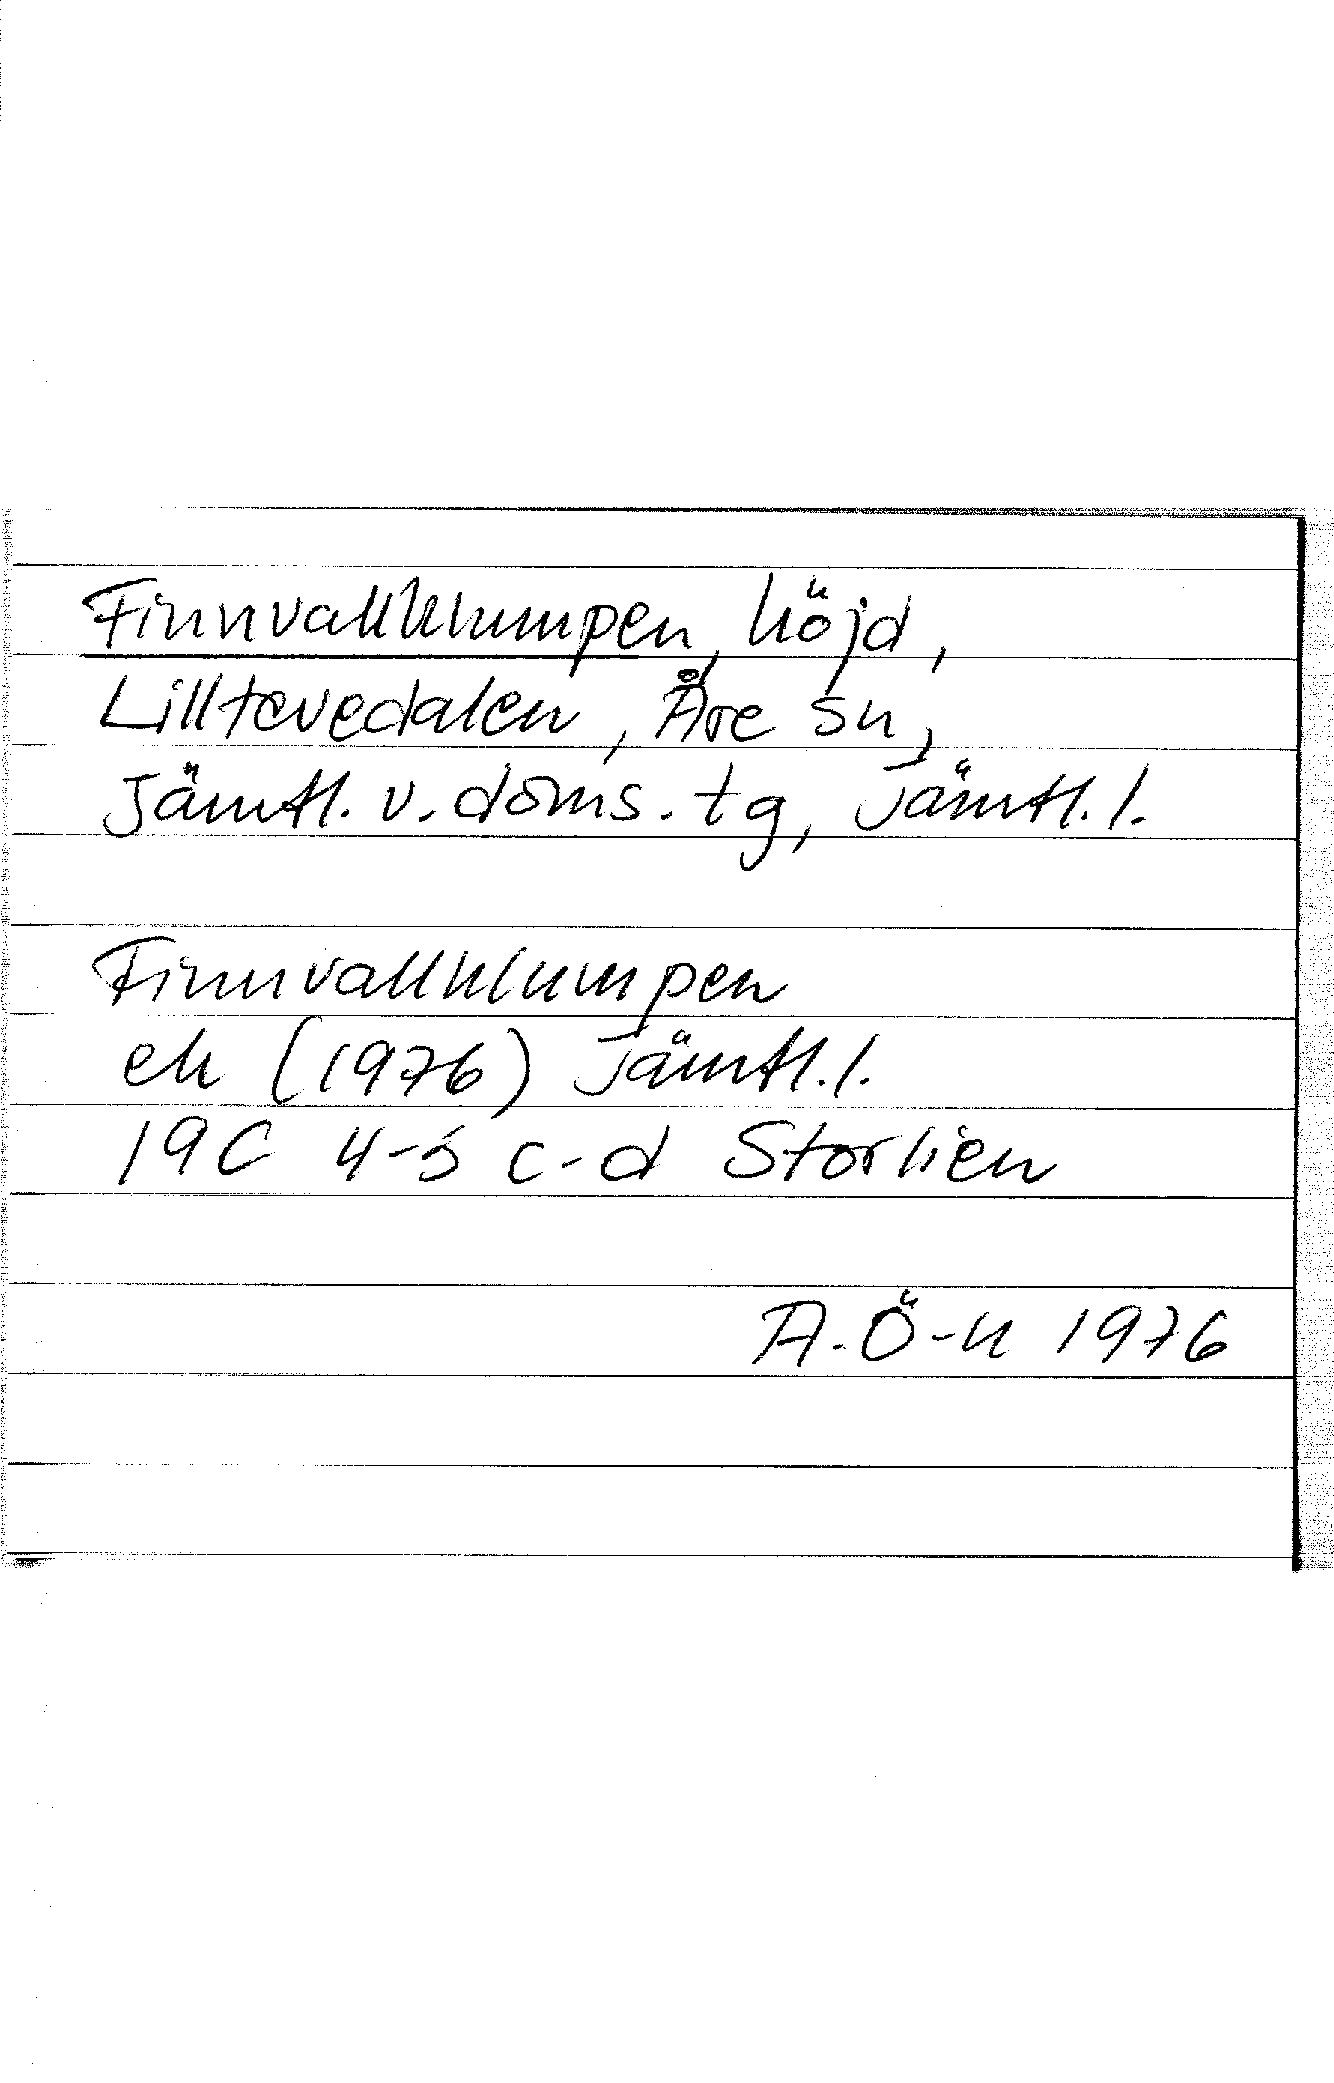 Finnvallklumpen, höjd,
Lilltevedalen, Åre sn,
Jämtl. v. doms. tg, Jämtl. l.
Finnvallklumpen
ek (1976) Jämtl. l.
19C 4-5 c-d Storlien
A.Ö-n 1976